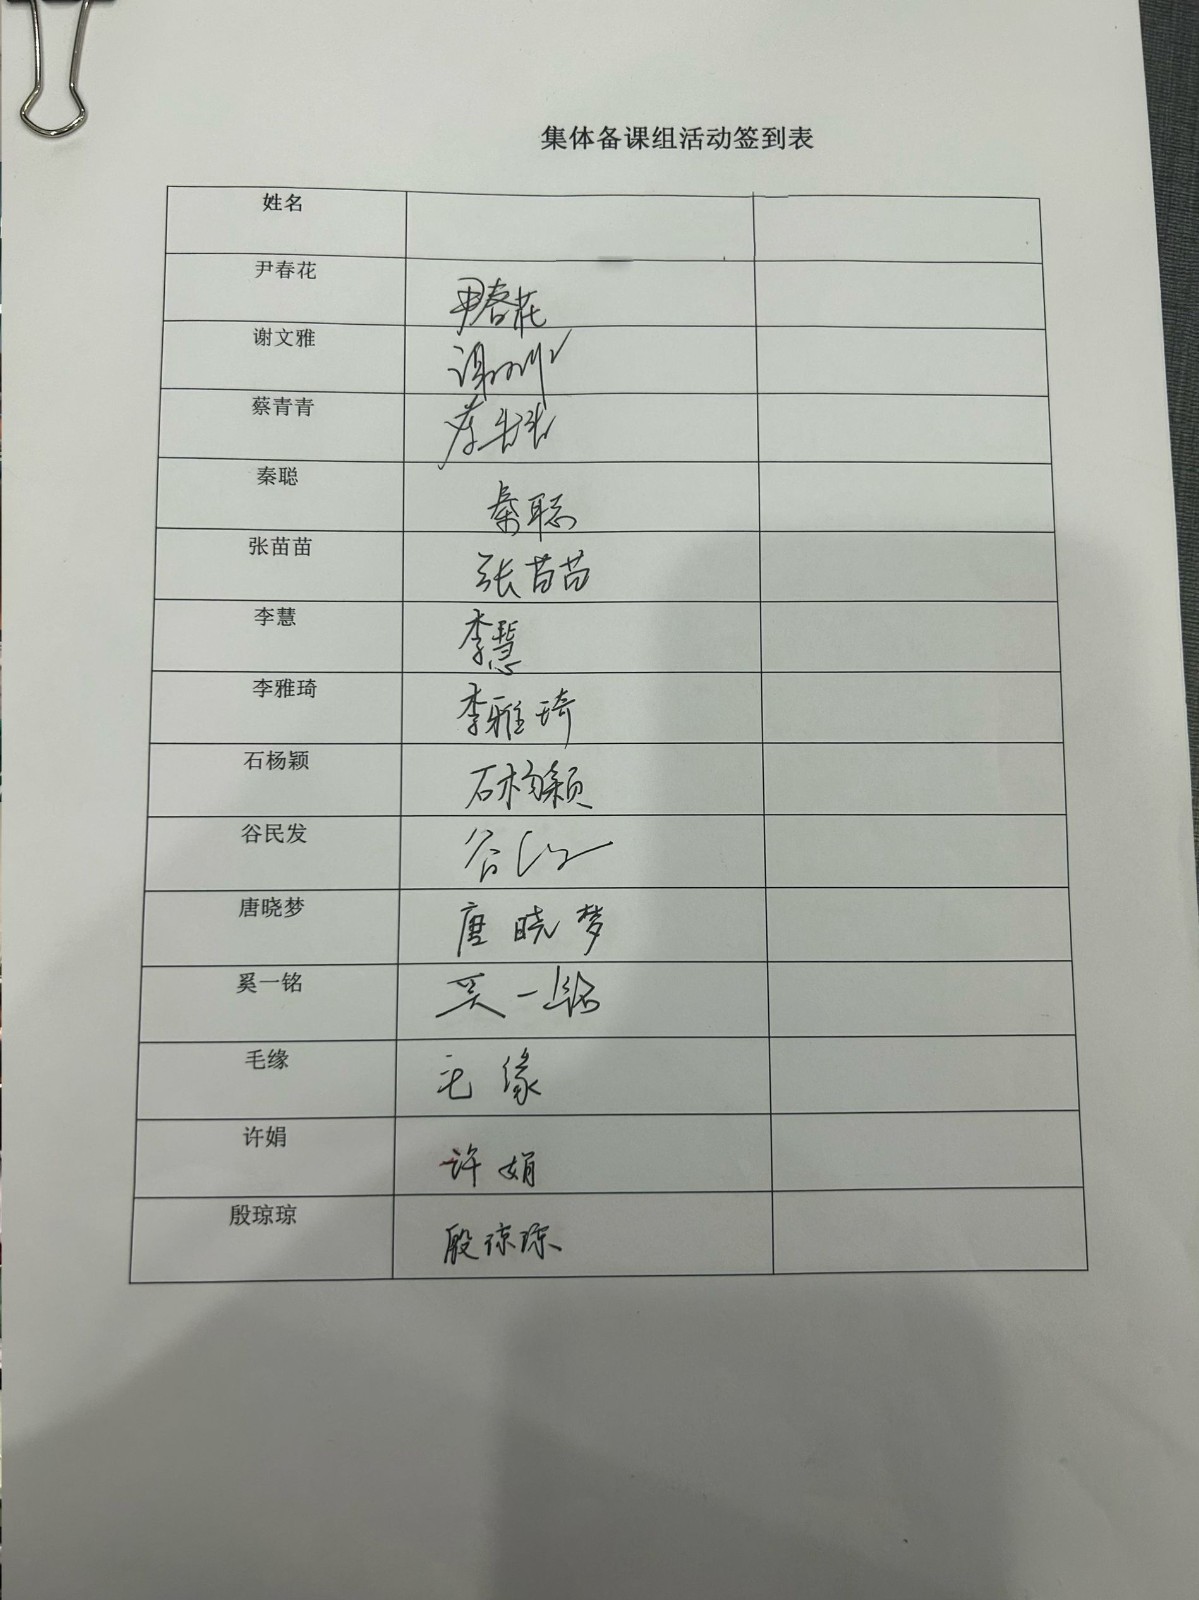 集体备课组活动签到表
姓名
尹春花 尹春花
谢文雅 谢文雅
蔡青青 蔡青青
秦聪 秦聪
张苗苗 张苗苗
李慧 李慧
李雅琦 李雅琦
石杨颖 石杨颖
谷民发 谷
唐晓梦 唐晓梦
奚一铭 奚一铭
毛缘 毛缘
许娟 许娟
殷琼琼 殷琼琼